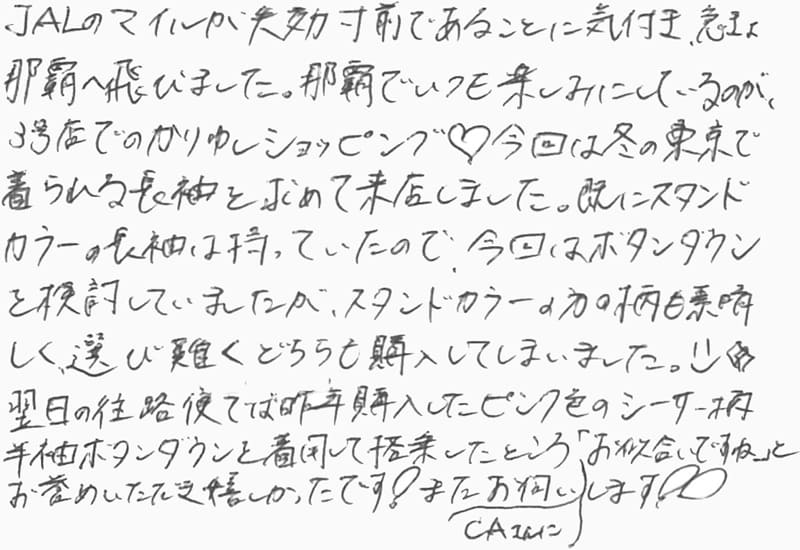 JALのマイルが失効寸前であることに気付き、急きょ
那覇へ飛びました。那覇でいつも楽しみにしているのが、
3号店でのかりゆしショッピング♡今回は冬の東京で
着られる長袖を求めて来店しました。既にスタンド
カラーの長袖は持っていたので、今回はボタンダウン
を検討していましたが、スタンドカラーの方の柄も素晴
しく、選び難くどちらも購入してしまいました。
翌日の往路便では昨年購入したピンク色のシーサー柄
半袖ボタンダウンを着用して搭乗したところ「お似合いですね」と
お誉めいただき嬉しかったです！またお伺いします!
CAさんに